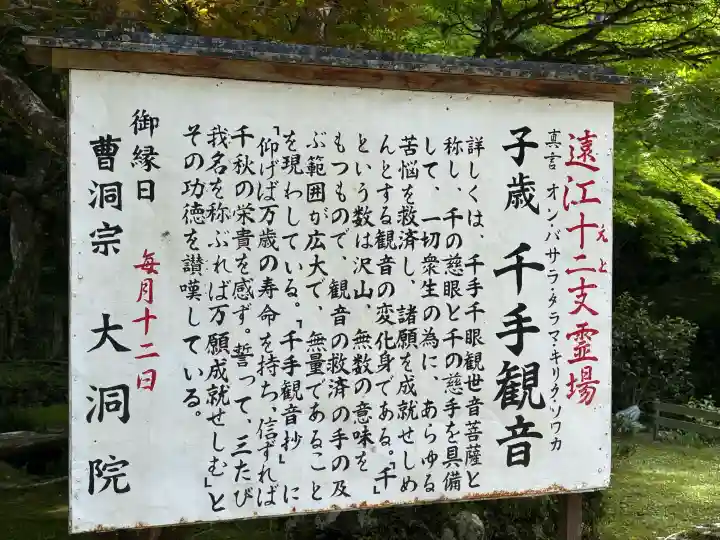 遠江十二支霊場
えと
真言 オンバサラ・タラマ・キリク・ソワカ
子歳 千手観音
詳しくは、千手千眼観世音菩薩と
称し、千の慈眼と千の慈手を具備
して、一切衆生の為に、あらゆる
苦悩を救済し、諸願を成就せしめ
んとする観音の変化身である。「千」
という数は沢山、無数の意味を
もつもので、観音の救済の手の及
ぶ範囲が広大で、無量であること
を現わしている。「千手観音抄」に
「仰げば万歳の寿命を持ち、信ずれば
千秋の栄貴を感ず。誓って、三たび
我名を称ぶれば万願成就せしむ」と
その功徳を讃嘆している。
御縁日 毎月十二日
曹洞宗 大洞院